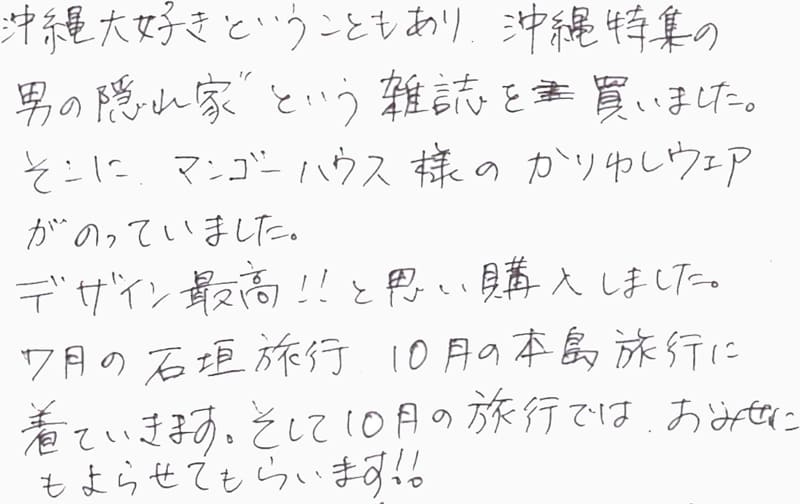 沖縄大好きということもあり、沖縄特集の
男の隠れ家"という雑誌を買いました。
そこに、マンゴーハウス様のかりゆしウェア
がのっていました。
デザイン最高!!と思い購入しました。
7月の石垣旅行 10月の本島旅行に
着ていきます。そして10月の旅行では、おみせに
もよらせてもらいます!!